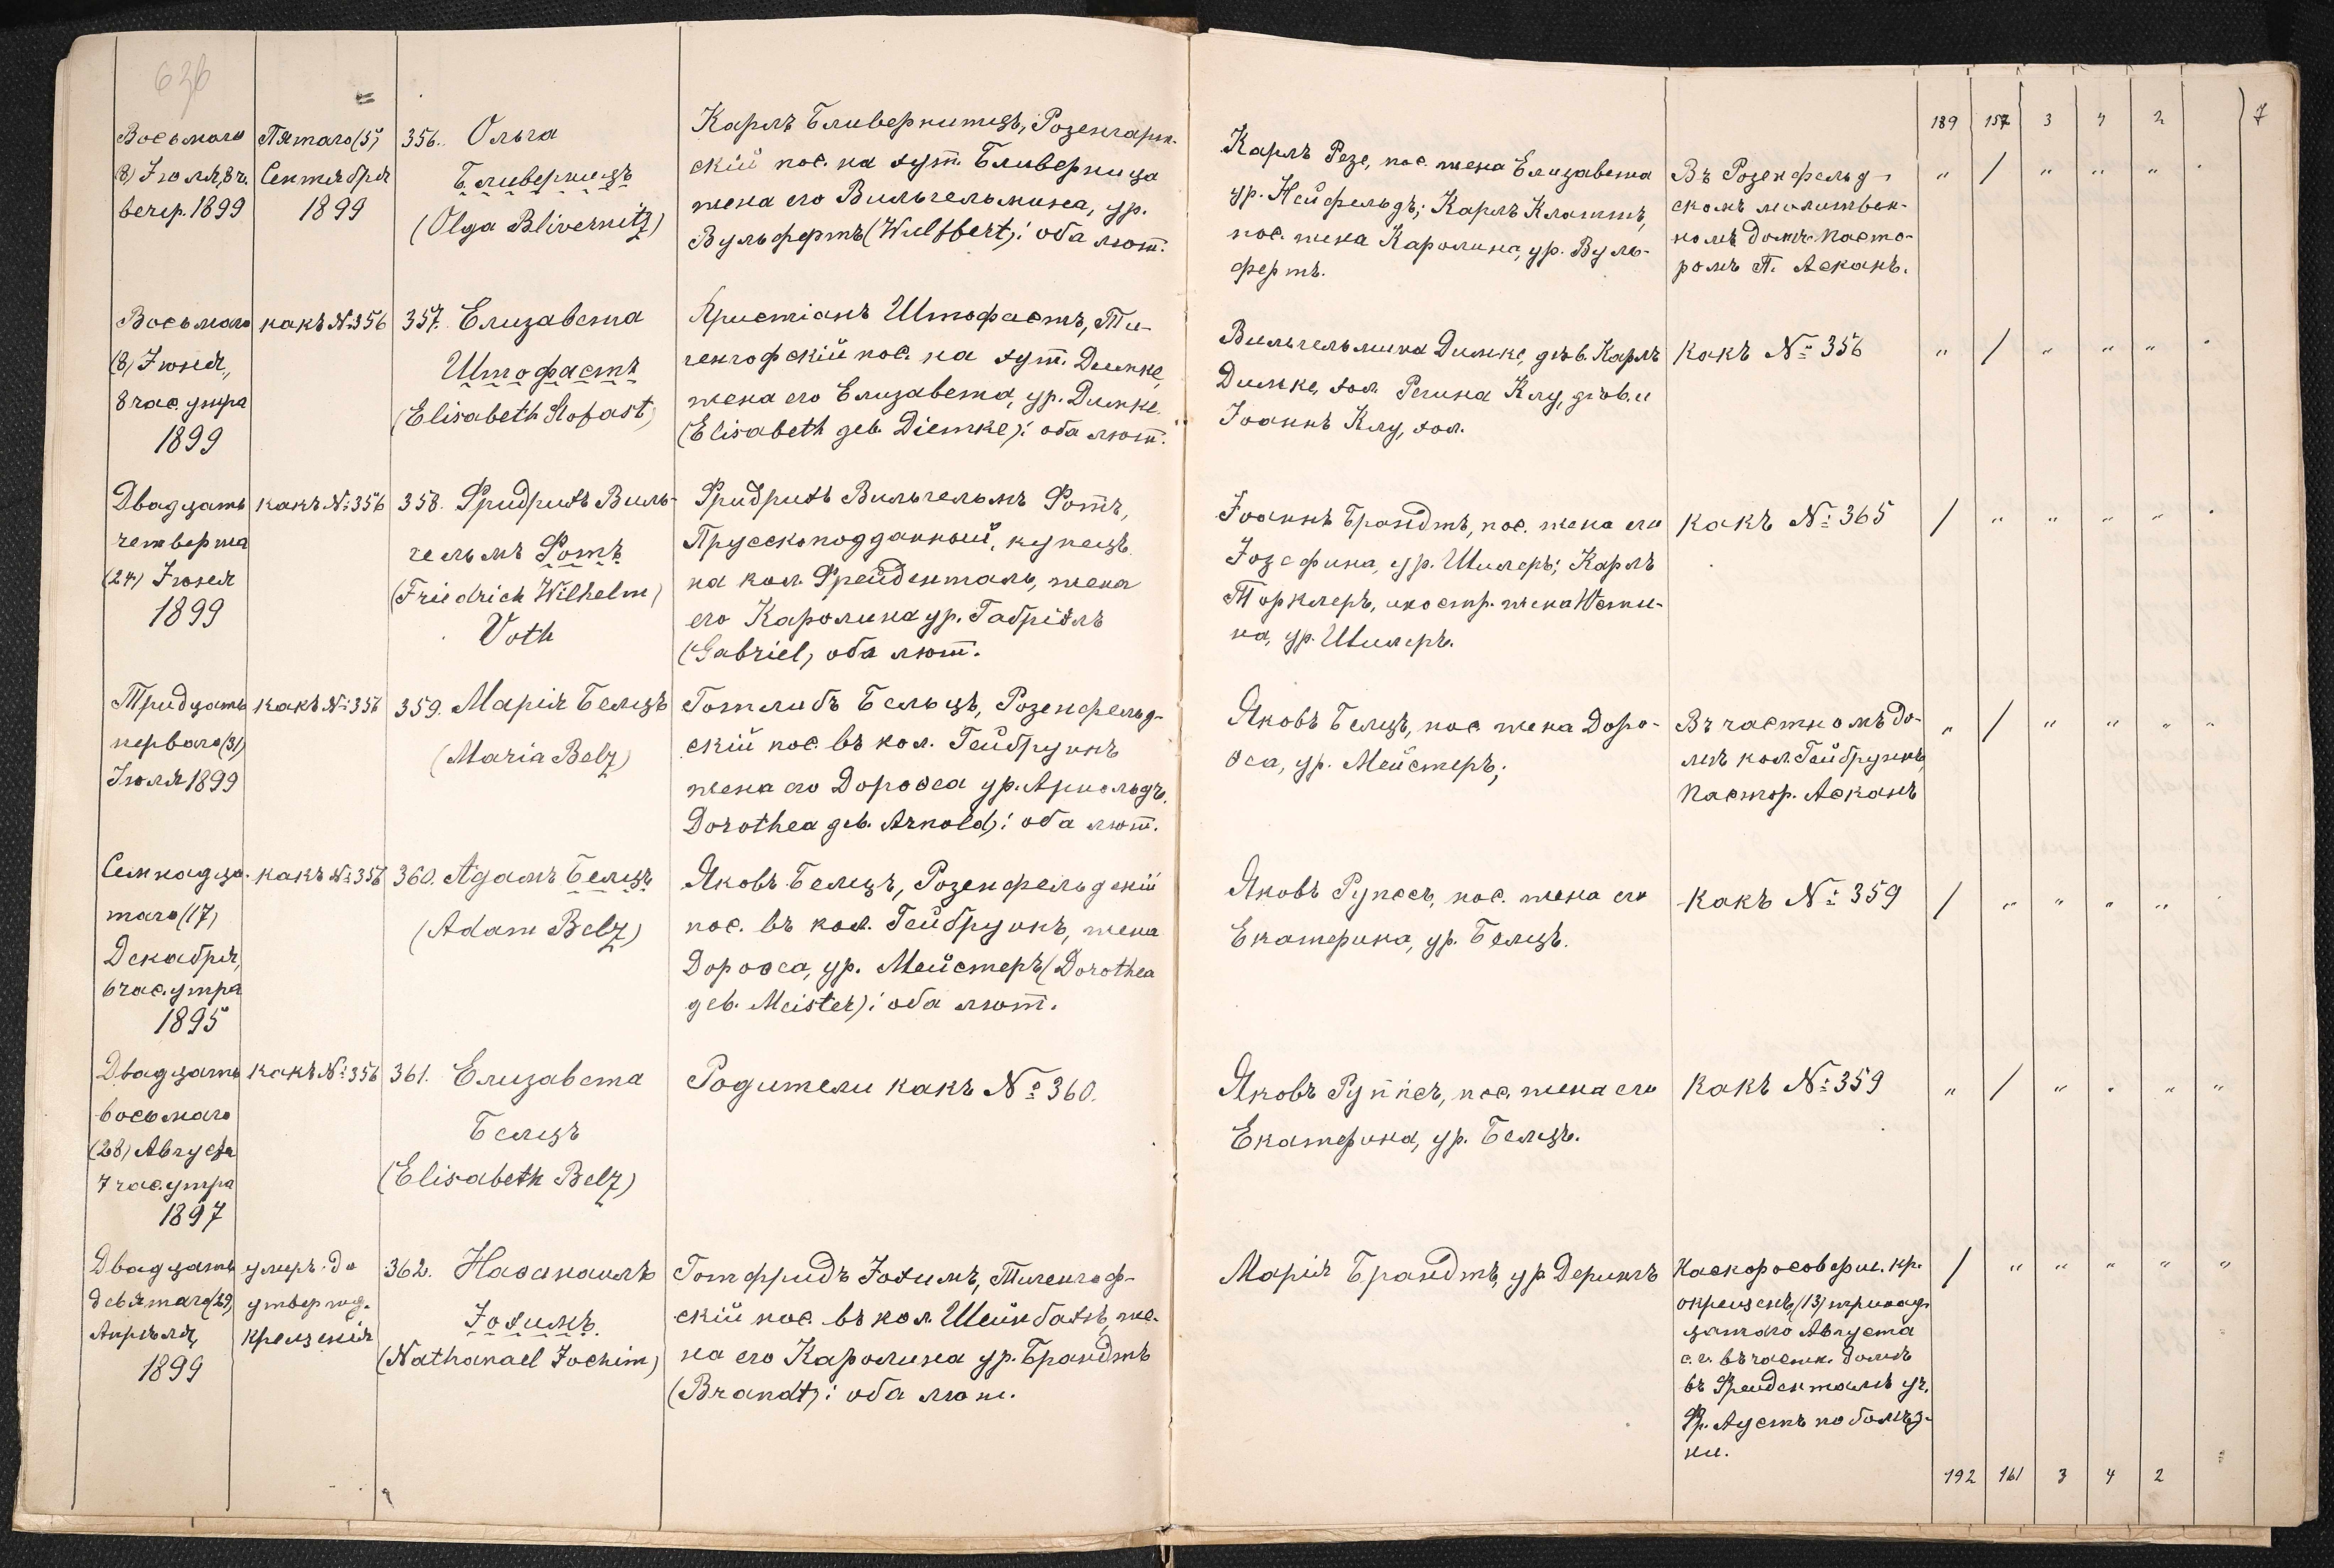 636
189 157 3 4 2 7
Восьмаго
(8) Іюля, 8 ч.
вечер. 1899
Пятаго (5)
Сентября
1899
356. Ольга
Бливерницъ
(Olga Blivernitz)
Карлъ Бливерницъ, Розенгарт-
скій пос. на хут. Бливерница
жена его Вильгельмина, ур.
Вульфертъ (Wulfbert); оба лют.
Карлъ Резе, пос. жена Елизавета
ур. Нейфельдъ; Карлъ Клаттъ,
пос. жена Каролина, ур. Вуль-
фертъ.
Въ Розенфельд-
скомъ молитвен-
номъ домѣ пасто-
ромъ П. Асканъ.
" / " " "
Восьмаго
(8) Іюня,
8 час. утра
1899
какъ №356
357. Елизавета
Штофастъ
(Elisabeth Stofast)
Христіанъ Штофастъ, Ти-
генгофскій пос. на хут. Димке,
жена его Елизавета, ур. Димке.
(Elisabeth geb. Diemke); оба лют.
Вильгельмина Димке, дѣв. Карлъ
Димке, хол. Регина Клу, дѣв. и
Іоаннъ Клу, хол.
какъ №356
" / " " "
Двадцать
четверта
(24) Іюня
1899
какъ №356
358. Фридрихъ Виль-
гельмъ Фотъ
(Friedrich Wilhelm)
Voth
Фридрихъ Вильгельмъ Фотъ,
Прусскоподданный, купецъ
на кол. Фрейденталь, жена
его Каролина ур. Габріэль
(Gabriel) оба лют.
Іоаннъ Брандтъ, пос. жена его
Іозефина, ур. Шилеръ; Карлъ
Торклеръ, иностр. жена Юсти-
на, ур. Шилеръ.
какъ №365
/ " " " "
Тридцать
перваго (31)
Іюля 1899
какъ №356
359. Марія Белцъ
(Maria Belz)
Готлибъ Бельцъ, Розенфельд-
скій пос. въ кол. Гейбрунъ
жена его Дороѳеа ур. Арнольдъ,
Dorothea geb. Arnold); оба лют.
Яковъ Белцъ, пос. жена Доро-
ѳеа, ур. Мейстеръ;
Въ частномъ до-
мѣ кол. Гейбрунъ,
Пастор. Асканъ
" / " " " "
Семнадца-
таго (17)
Декабря,
6 час. утра
1895
какъ №356
360. Адамъ Белцъ
(Adam Belz)
Яковъ Белцъ, Розенфельдскій
пос. въ кол. Гейбрунъ, жена
Дороѳеа, ур. Мейстеръ (Dorothea
geb. Meister); оба лют.
Яковъ Руппсъ, пос. жена его
Екатерина, ур. Белцъ.
какъ №359
/ " " " "
Двадцать
восьмаго
(28) Августа
7 час. утра
1897
какъ №356
361. Елизавета
Белцъ
(Elisabeth Belz)
Родители какъ №360.
Яковъ Руппсъ, пос. жена его
Екатерина, ур. Белцъ.
какъ №359
" / " " " "
Двадцать
девятаго (29)
Апрѣля,
1899
умеръ до
утвержд.
крещенія
362. Наѳанаилъ
Іохимъ
(Nathanael Jochim)
Готфридъ Іохимъ, Тигенгоф-
скій пос. въ кол. Штейнбахъ, же-
на его Каролина ур. Брандтъ
(Brandt); оба лют.
Марія Брандтъ, ур. Дерингъ
На скоро соверш. кр.
окрещенъ (13) тринад-
цатаго Августа
с. г. въ частн. домѣ
въ Фрейденталѣ уч.
Фр. Аустъ по болѣз-
ни.
/ " " " " "
192 161 3 4 2